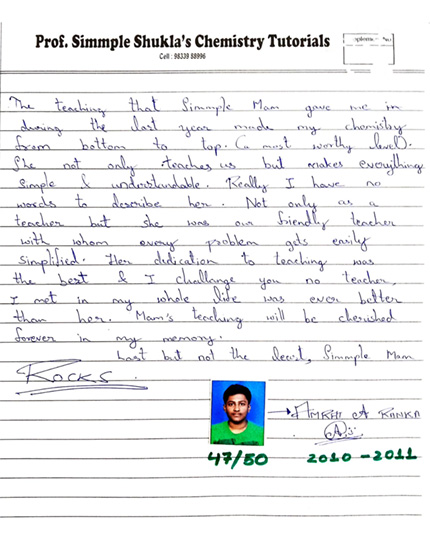 Prof. Simmple Shukla's Chemistry Tutorials
Cell : 98339 88996
The teaching that Simmple Mam gave me in
during the last year made my chemistry
from bottom to top. (a most worthy level).
She not only teaches us but makes everything
simple & understandable. Really I have no
words to describe her. Not only as a
teacher but she was our friendly teacher
with whom every problem gets easily
simplified. Her dedication to teaching was
the best & I challange you no teacher,
I met in my whole life was ever better
than her. Mam's teaching will be cherished
forever in my memory.
Last but not the least, Simmple Mam
ROCKS.
A RANKA
47/50 2010 - 2011